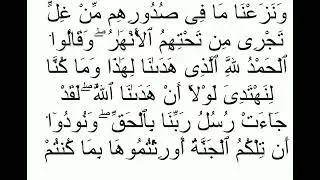 وَنَزَعْنَا مَا فِى صُدُورِهِم مِّنْ غِلٍّ
تَجْرِى مِن تَحْتِهِمُ ٱلْأَنْهَـٰرُ ۖ وَقَالُوا۟
ٱلْحَمْدُ لِلَّهِ ٱلَّذِى هَدَىٰنَا لِهَـٰذَا وَمَا كُنَّا
لِنَهْتَدِىَ لَوْلَآ أَنْ هَدَىٰنَا ٱللَّهُ ۖ لَقَدْ
جَآءَتْ رُسُلُ رَبِّنَا بِٱلْحَقِّ ۖ وَنُودُوٓا۟
أَن تِلْكُمُ ٱلْجَنَّةُ أُورِثْتُمُوهَا بِمَا كُنتُمْ